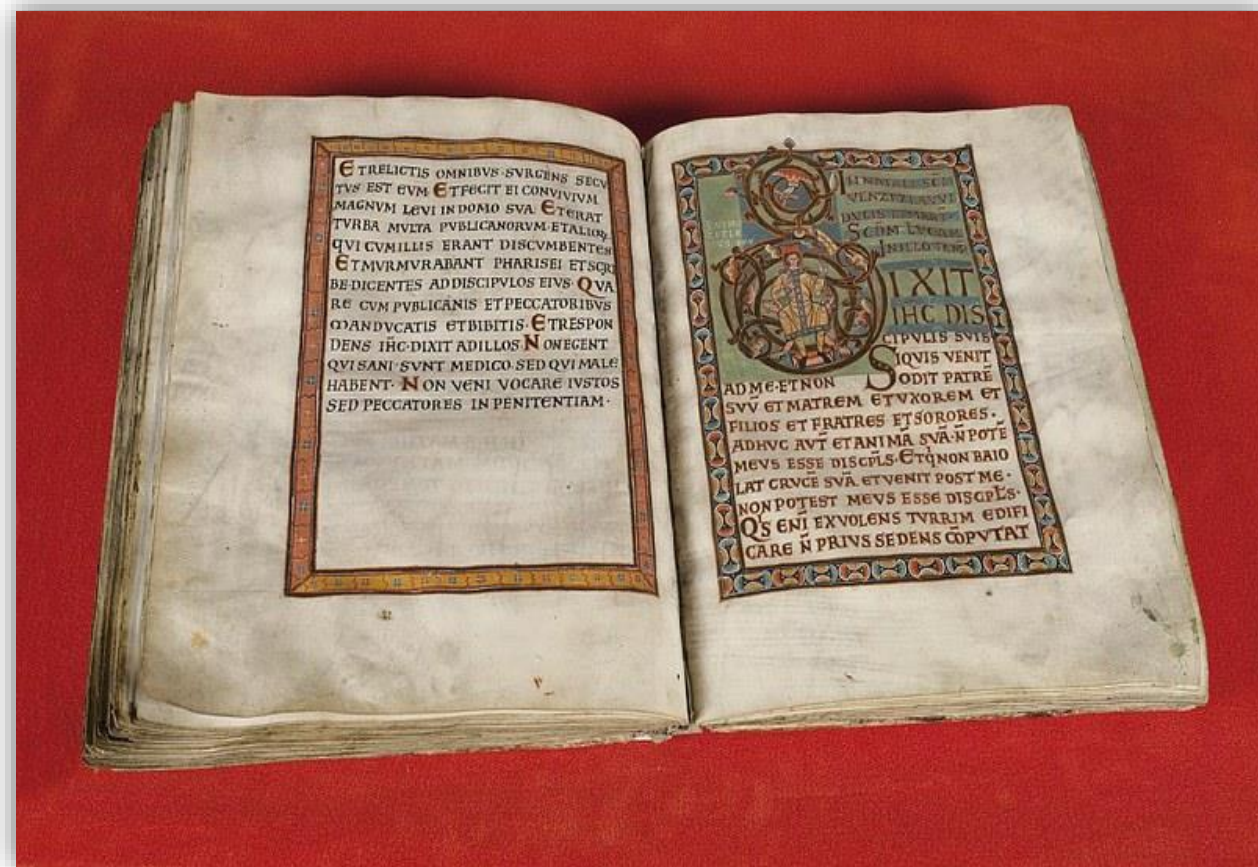 ET RELICTIS OMNIBVS·SVRGENS SECV
TVS EST EVM·ET FECIT EI CONVIVIVM
MAGNVM LEVI IN DOMO SVA·ET ERAT
TVRBA MVLTA PVBLICANORVM·ET ALIORV
QVI CVM ILLIS ERANT DISCVMBENTES
ET MVRMVRABANT PHARISEI ET SCRI
BE·DICENTES AD DISCIPVLOS EIVS·QVA
RE CVM PVBLICANIS ET PECCATORIBVS
MANDVCATIS ET BIBITIS·ET RESPON
DENS IHC·DIXIT AD ILLOS NON EGENT
QVI SANI·SVNT MEDICO·SED QVI MALE
HABENT·NON VENI VOCARE IVSTOS
SED PECCATORES IN PENITENTIAM·
VENZEZLAVVI
DVCIS
SCDM LVCAM
IN ILLO
DIXIT
IHC DIS
CIPVLIS SVIS
SIQVIS VENIT
AD ME·ET NON ODIT PATRĒ
SVV̄ ET MATREM ET VXOREM ET
FILIOS ET FRATRES ET SORORES·
ADHVC AVT̄ ET ANIMĀ SVĀ·N̄ POTĒ
MEVS ESSE DISCPLS·ET Q̇ NON BAIO
LAT CRVCĒ SVĀ ET VENIT POST ME·
NON POTEST MEVS ESSE DISCPLS·
Q'S ENĪ EX VOLENS TVRRIM EDIFI
CARE N̄ PRIVS SEDENS CŌPVTAT